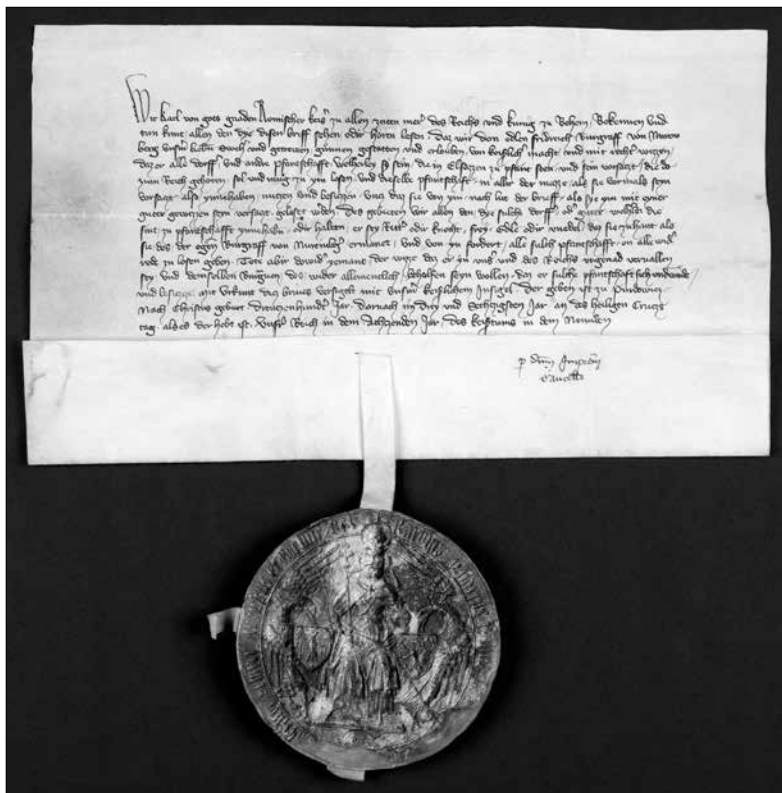 Wir karl von gots gnaden Romischer keiser zu allen zeiten merer des Reichs und kunig zu Behem, Bekennen und
tun kunt allen den dye disen briff sehen odir horen lesen, daz wir dem edlen fridrich Burggraf von Nuren
berg unsirm lieben und getrewen gunnen gestatten und erlouben, von keiserlich macht und mit rechter wizzen,
daz er alle dorff, und ander pfantschafft welherley sy sein die in Elsazzen zu pfande sten und sein vorsatzt, die do
zum Reich gehoren, sol und mag zu ym losen, und dieselbe pfantschaft in aller der mazze, als sie vormals seyn
vorsatzt, also ynnehaben, nutzen und besitzen, untz daz sie von ym nach lut der brieff, als sye ym mit seyner
guter gewizzen seyn vorsatzt, geloset werden. Des gebieten wir allen den dye sulch dorff, oder guter welherley die
sint zu pfantschafft ynnehaben, odir halten, er sey Ritter odir knecht, frey, edle odir unedel, daz sie zuhant als
sie des der ogen Burggraf von Nuremberg ermanet, und von yn fordert, alle sulch pfantschafft, on alle wider
rede zu losen geben. Tete abir dowider yemant der wizze daz er in unser und des Reichs ungnad vervallen
sey, und demselben Burggraven des, wider allermeniclich, beholfen seyn wollen, daz er sulche pfantschaft sich underwinde
und besitze, Mit urkunt diez briues versigelt mit unsirm keiserlichem Insigel, der geben ist zu Purdewin
Nach Christus geburt dreutzenhundert Jar, darnach im drey und Sechzigsten Jar, an des heiligen Crucze
tag, als es der hebt ist, unsirer Reich in dem Achczenden Jar, des keisertums in dem Neunden
p dnm Imperatorem
Cancell